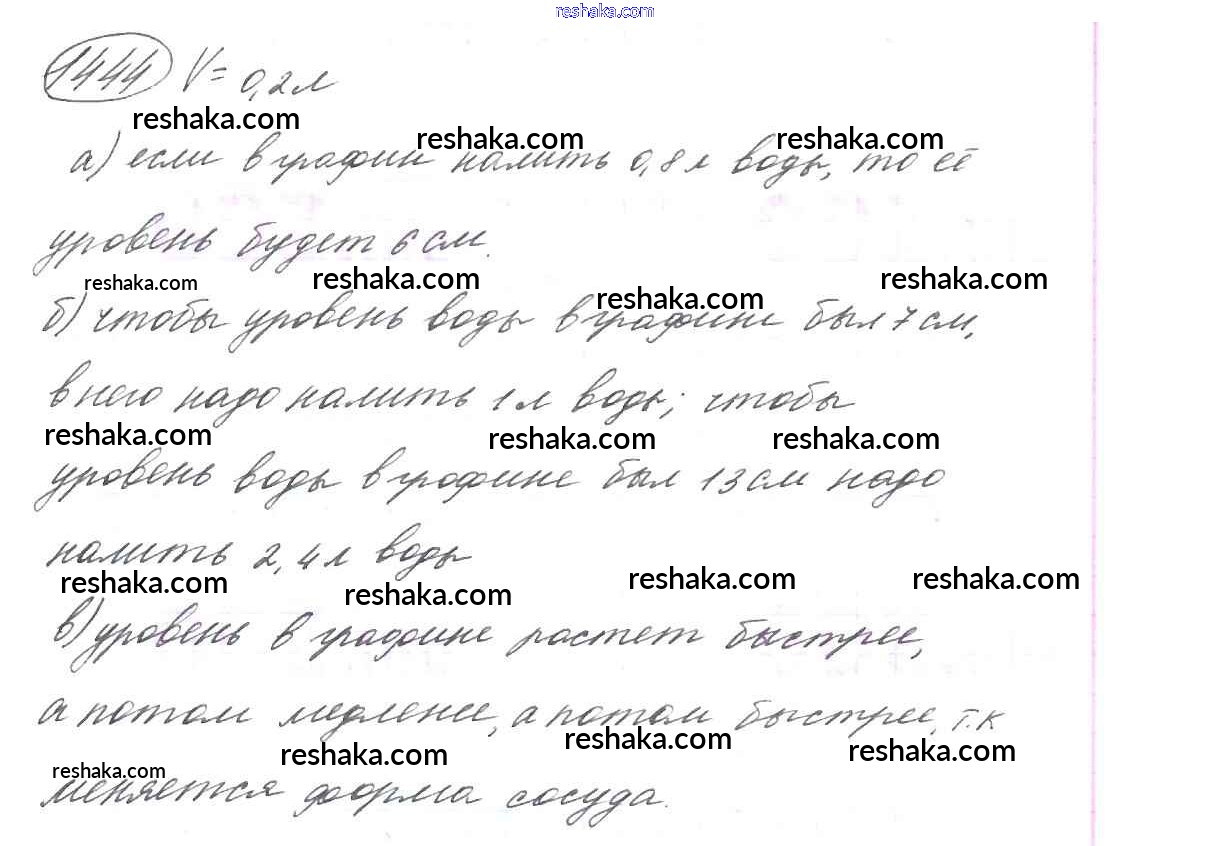 reshaka.com
1444 V = 0,2 л
reshaka.com
reshaka.com reshaka.com
а) если в графин налить 0,8 л воды, то её
уровень будет 6 см.
reshaka.com reshaka.com reshaka.com reshaka.com
б) чтобы уровень воды в графине был 7 см,
в него надо налить 1 л воды; чтобы
reshaka.com reshaka.com reshaka.com
уровень воды в графине был 13 см надо
налить 2,4 л воды
reshaka.com reshaka.com reshaka.com reshaka.com
в) уровень в графине растет быстрее,
а потом медленее, а потом быстрее, т.к
reshaka.com reshaka.com reshaka.com reshaka.com
меняется форма сосуда.